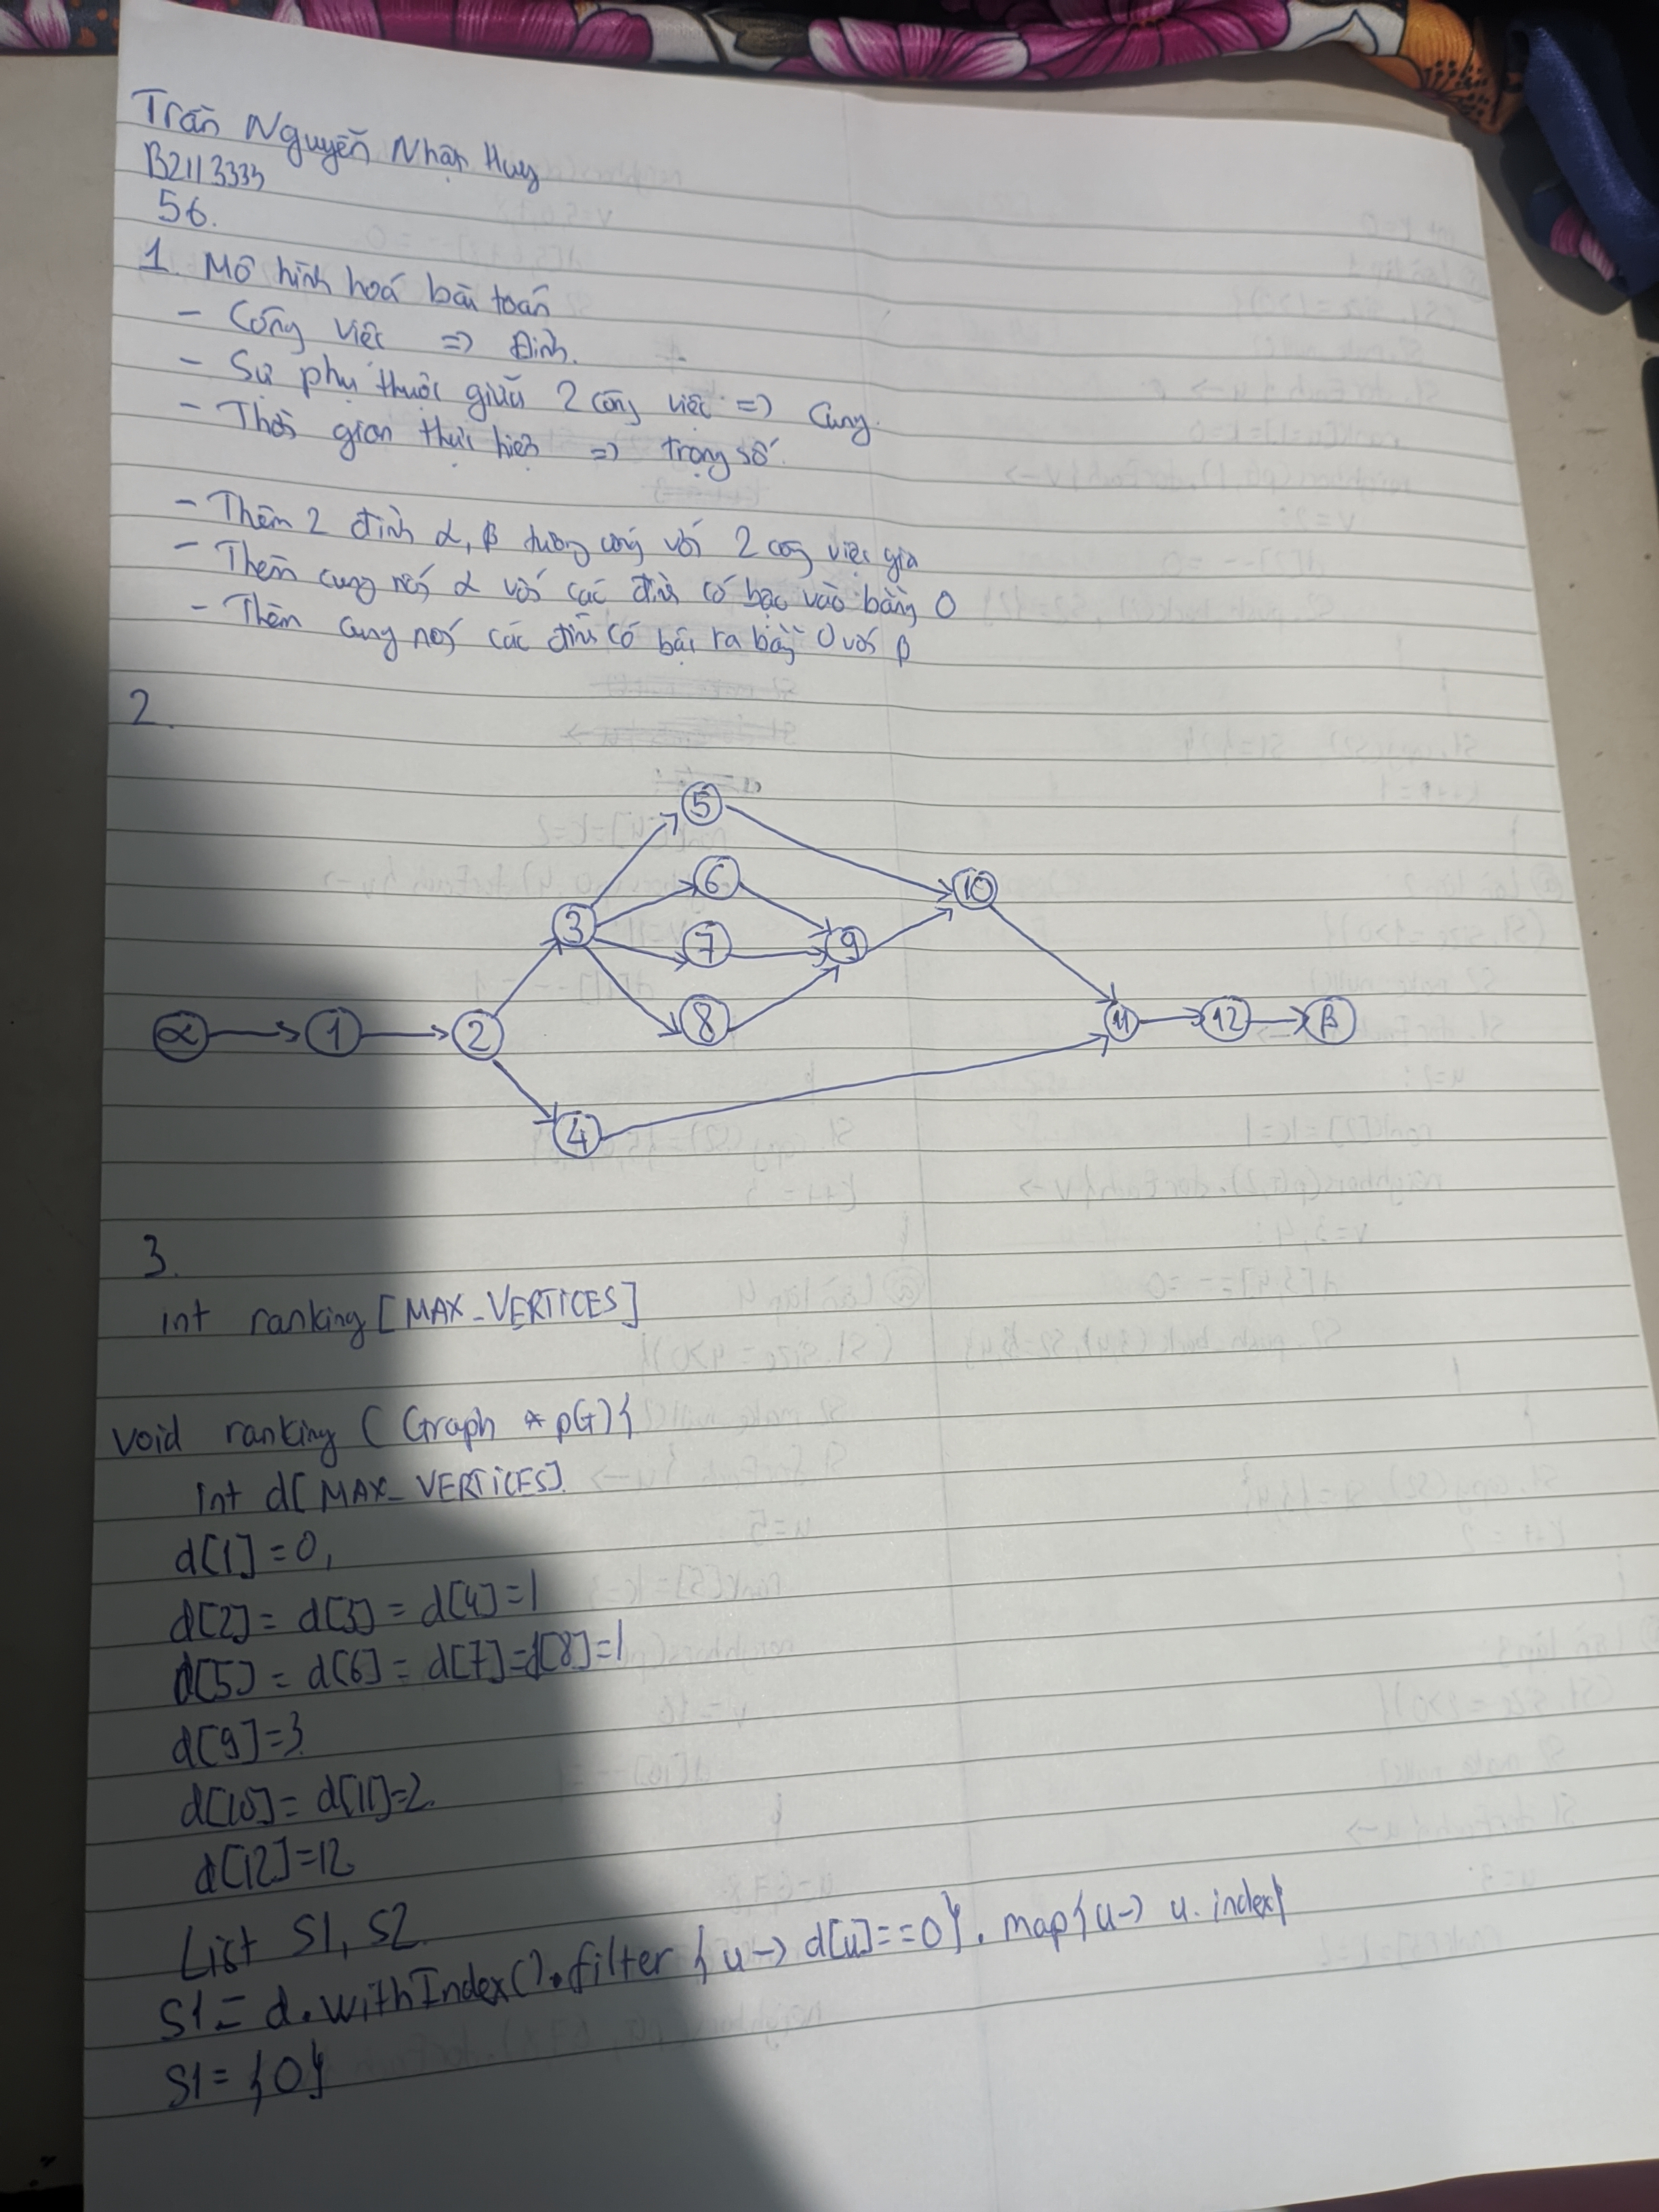 Trần Nguyễn Nhật Huy
B2113333
56.
1. Mô hình hoá bài toán
- Công việc => Đỉnh.
- Sự phụ thuộc giữa 2 công việc => Cung.
- Thời gian thực hiện => trọng số.
- Thêm 2 đỉnh α, β tương ứng với 2 công việc giả
- Thêm cung nối α với các đỉnh có bậc vào bằng 0
- Thêm cung nối các đỉnh có bậc ra bằng 0 với β
2.
5
6
10
3
7
9
α
1
2
8
11
12
β
4
3.
int ranking [MAX_VERTICES]
void ranking (Graph *pG){
int d[MAX_VERTICES]
d[1]=0,
d[2]= d[3] = d[4]=1
d[5] = d[6] = d[7]=d[8]=1
d[9]=3
d[10]= d[11]=2.
d[12]=12
List S1, S2
S1= d.withIndex().filter {u-> d[u]==0}. map{u-> u.index}
S1= {0}